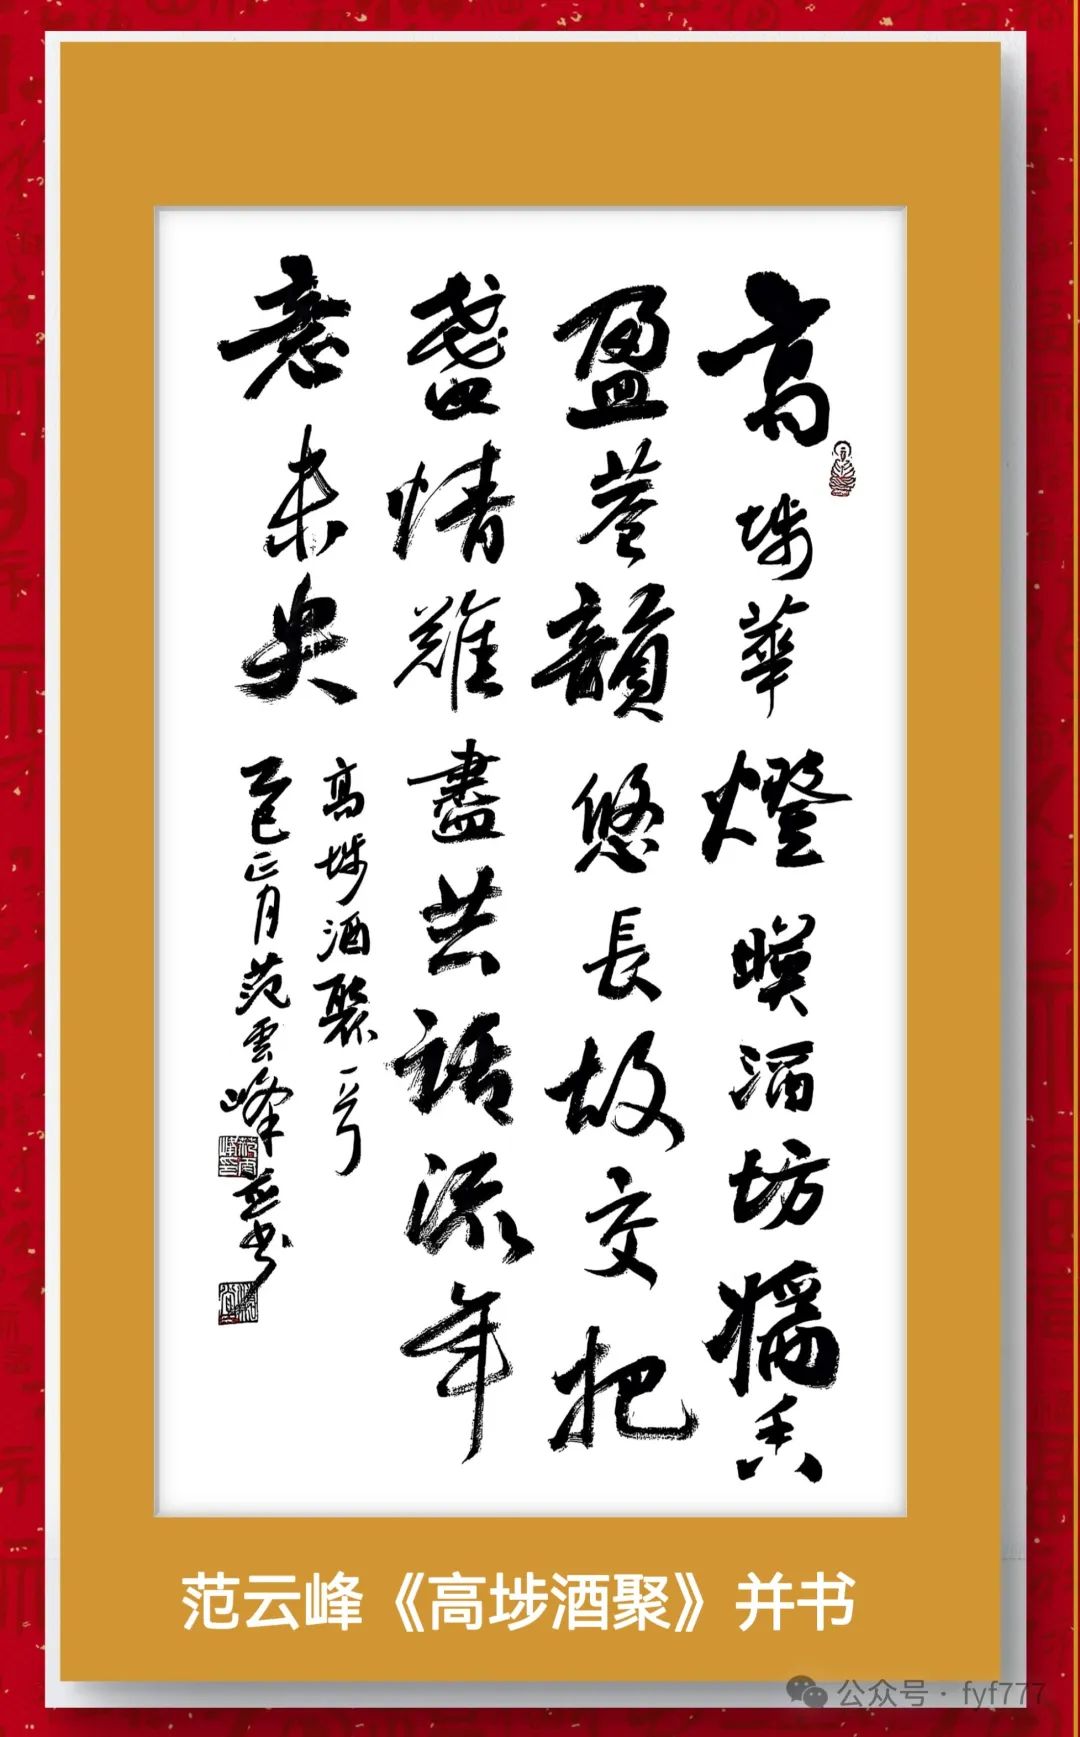 高埗華燈暎酒坊糯香
盈巷韻悠長故交把
盞情難盡共話流年
意未央
高埗酒聚一首
乙巳正月范雲峰並书
范云峰《高埗酒聚》并书
公众号·fyf777